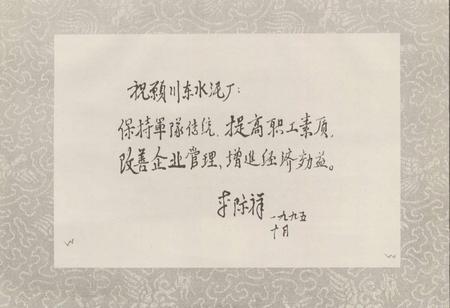 祝愿川东水泥厂:
保持軍隊传统、提高职工素质,
改善企业管理、增进经济効益。
李际祥
一九九五
十月